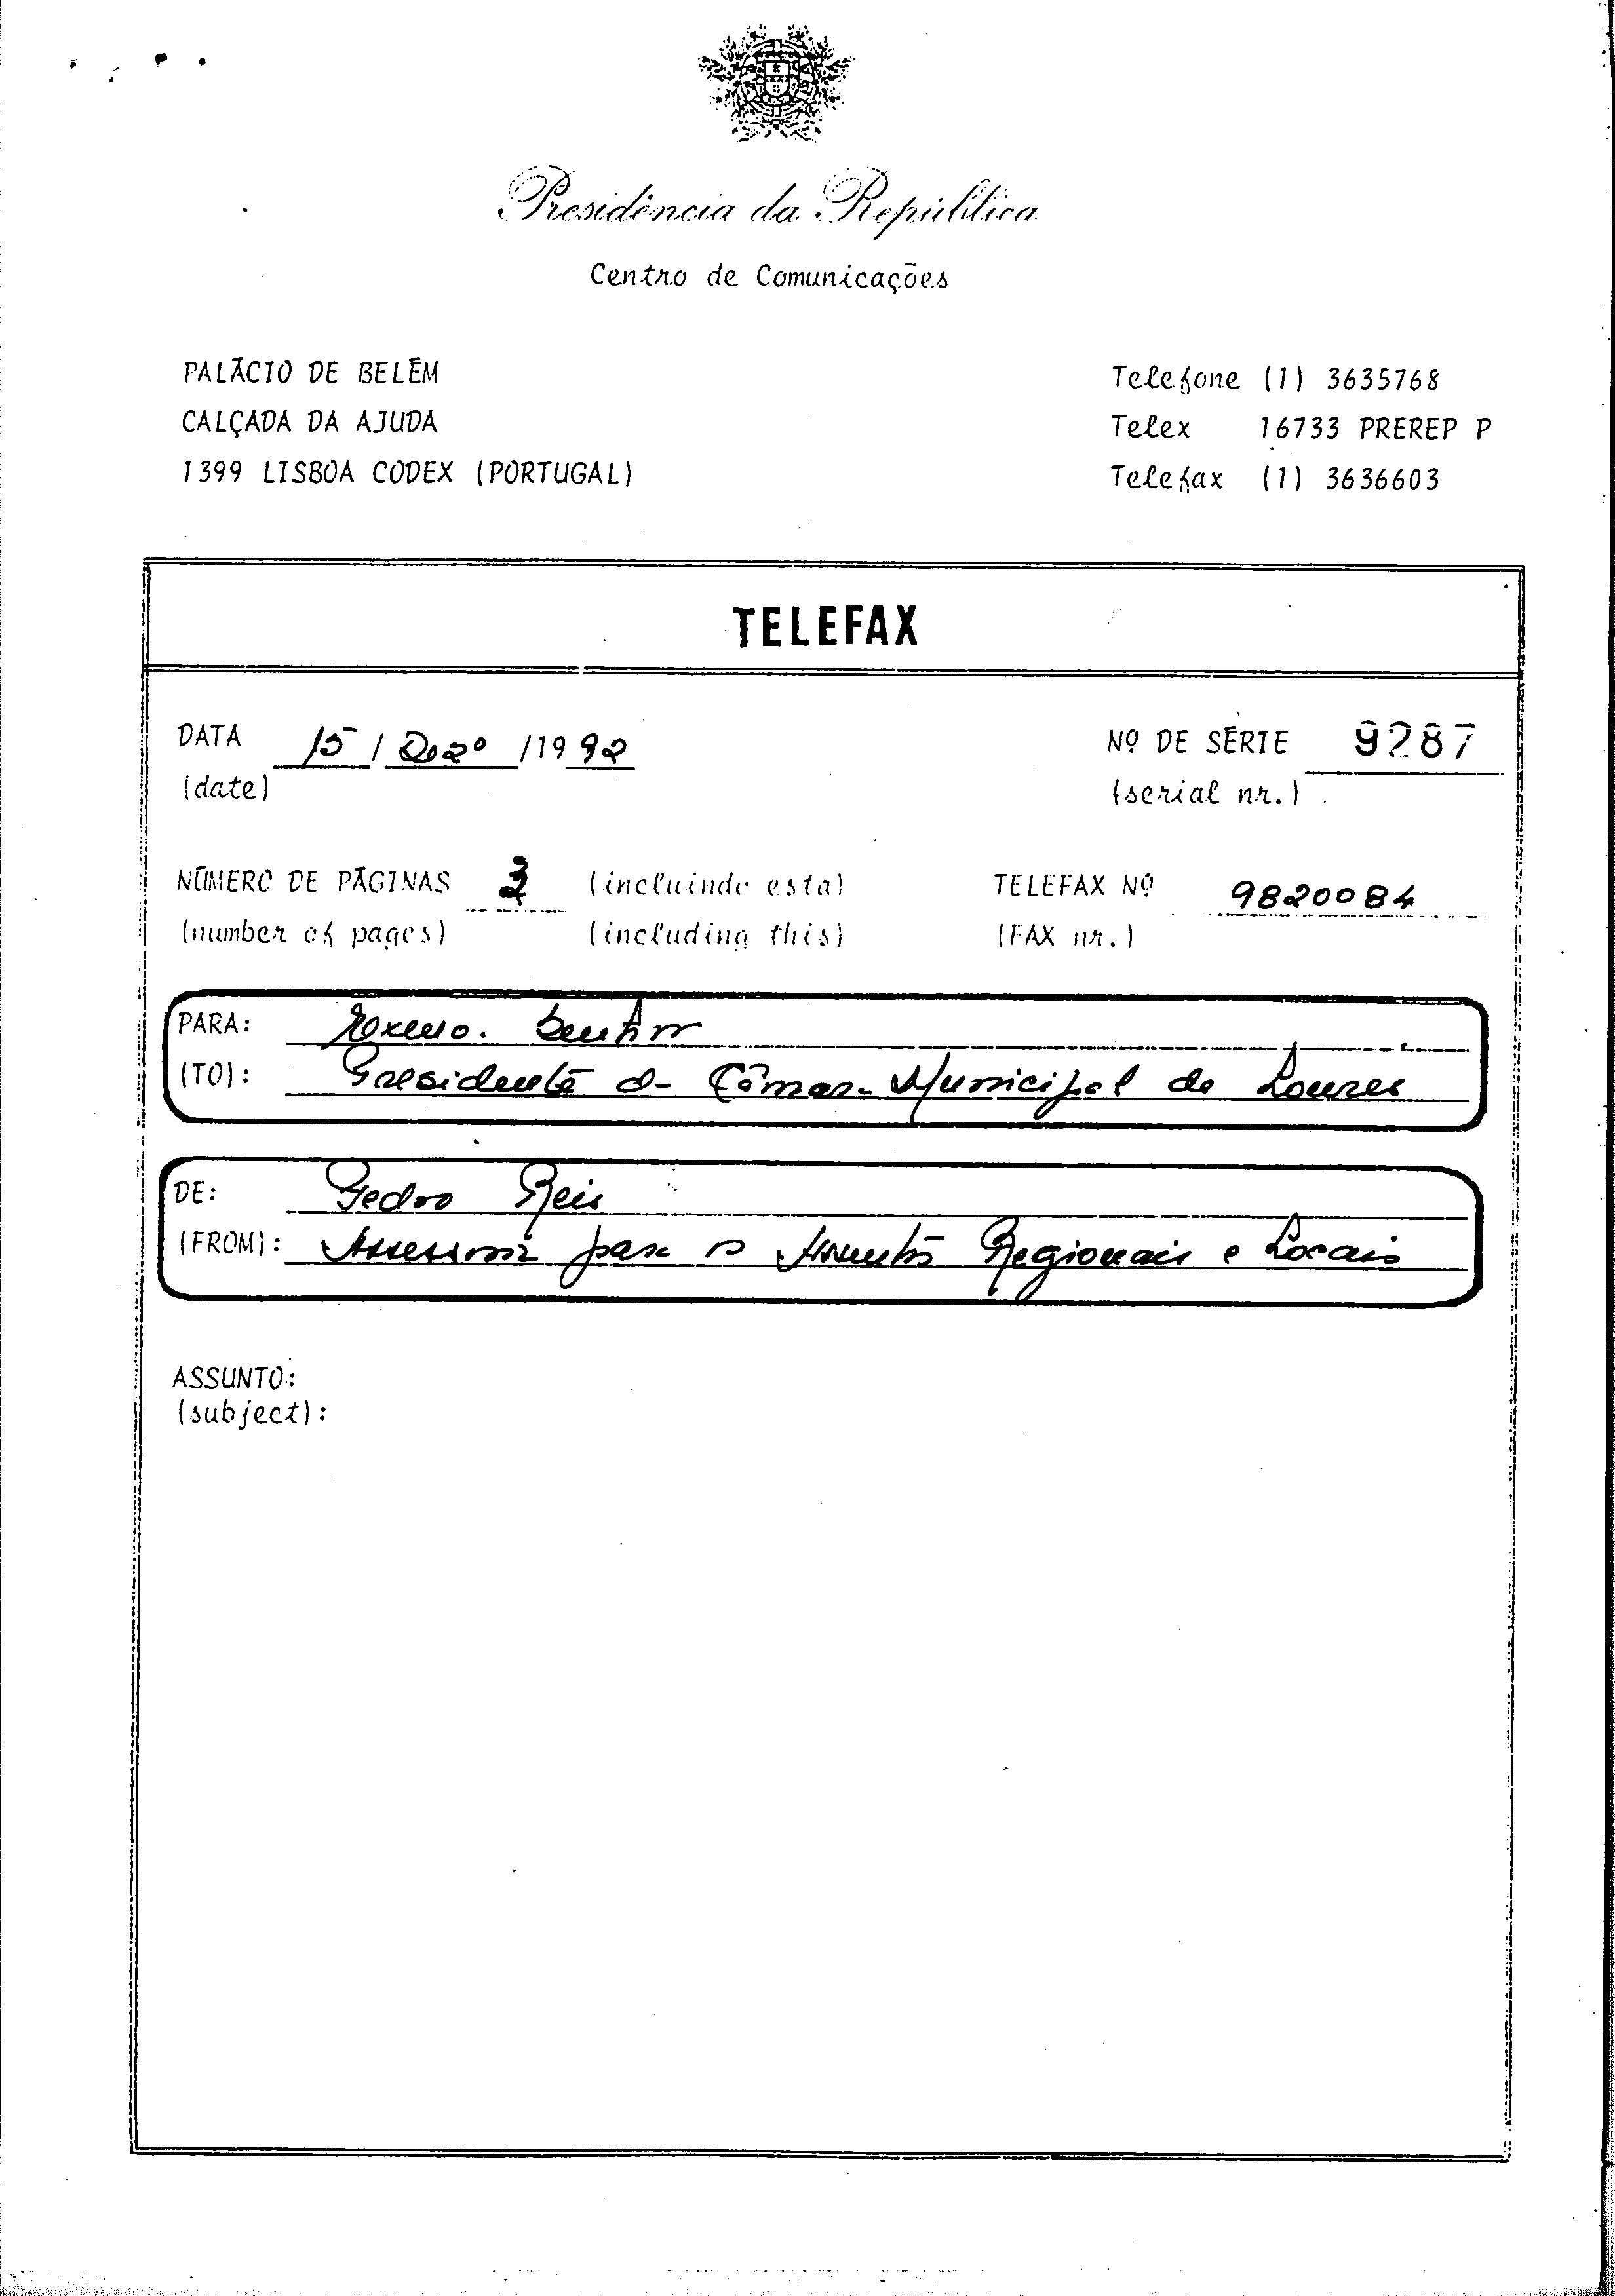 Presidência da República
Centro de Comunicações
PALÁCIO DE BELÉM
CALÇADA DA AJUDA
1399 LISBOA CODEX (PORTUGAL)
Telefone (1) 3635768
Telex 16733 PREREP P
Telefax (1) 3636603
TELEFAX
DATA 15 / Dezº / 1992
(date)
Nº DE SÉRIE 9287
(serial nr.)
NÚMERO DE PÁGINAS (incluindo esta)
(number of pages) (including this)
TELEFAX Nº 9820084
(FAX nr.)
PARA: Exmo. Senhor
(TO): Presidente da Câmara Municipal de Loures
DE: Pedro Reis
(FROM): Assessor para os Assuntos Regionais e Locais
ASSUNTO:
(subject):